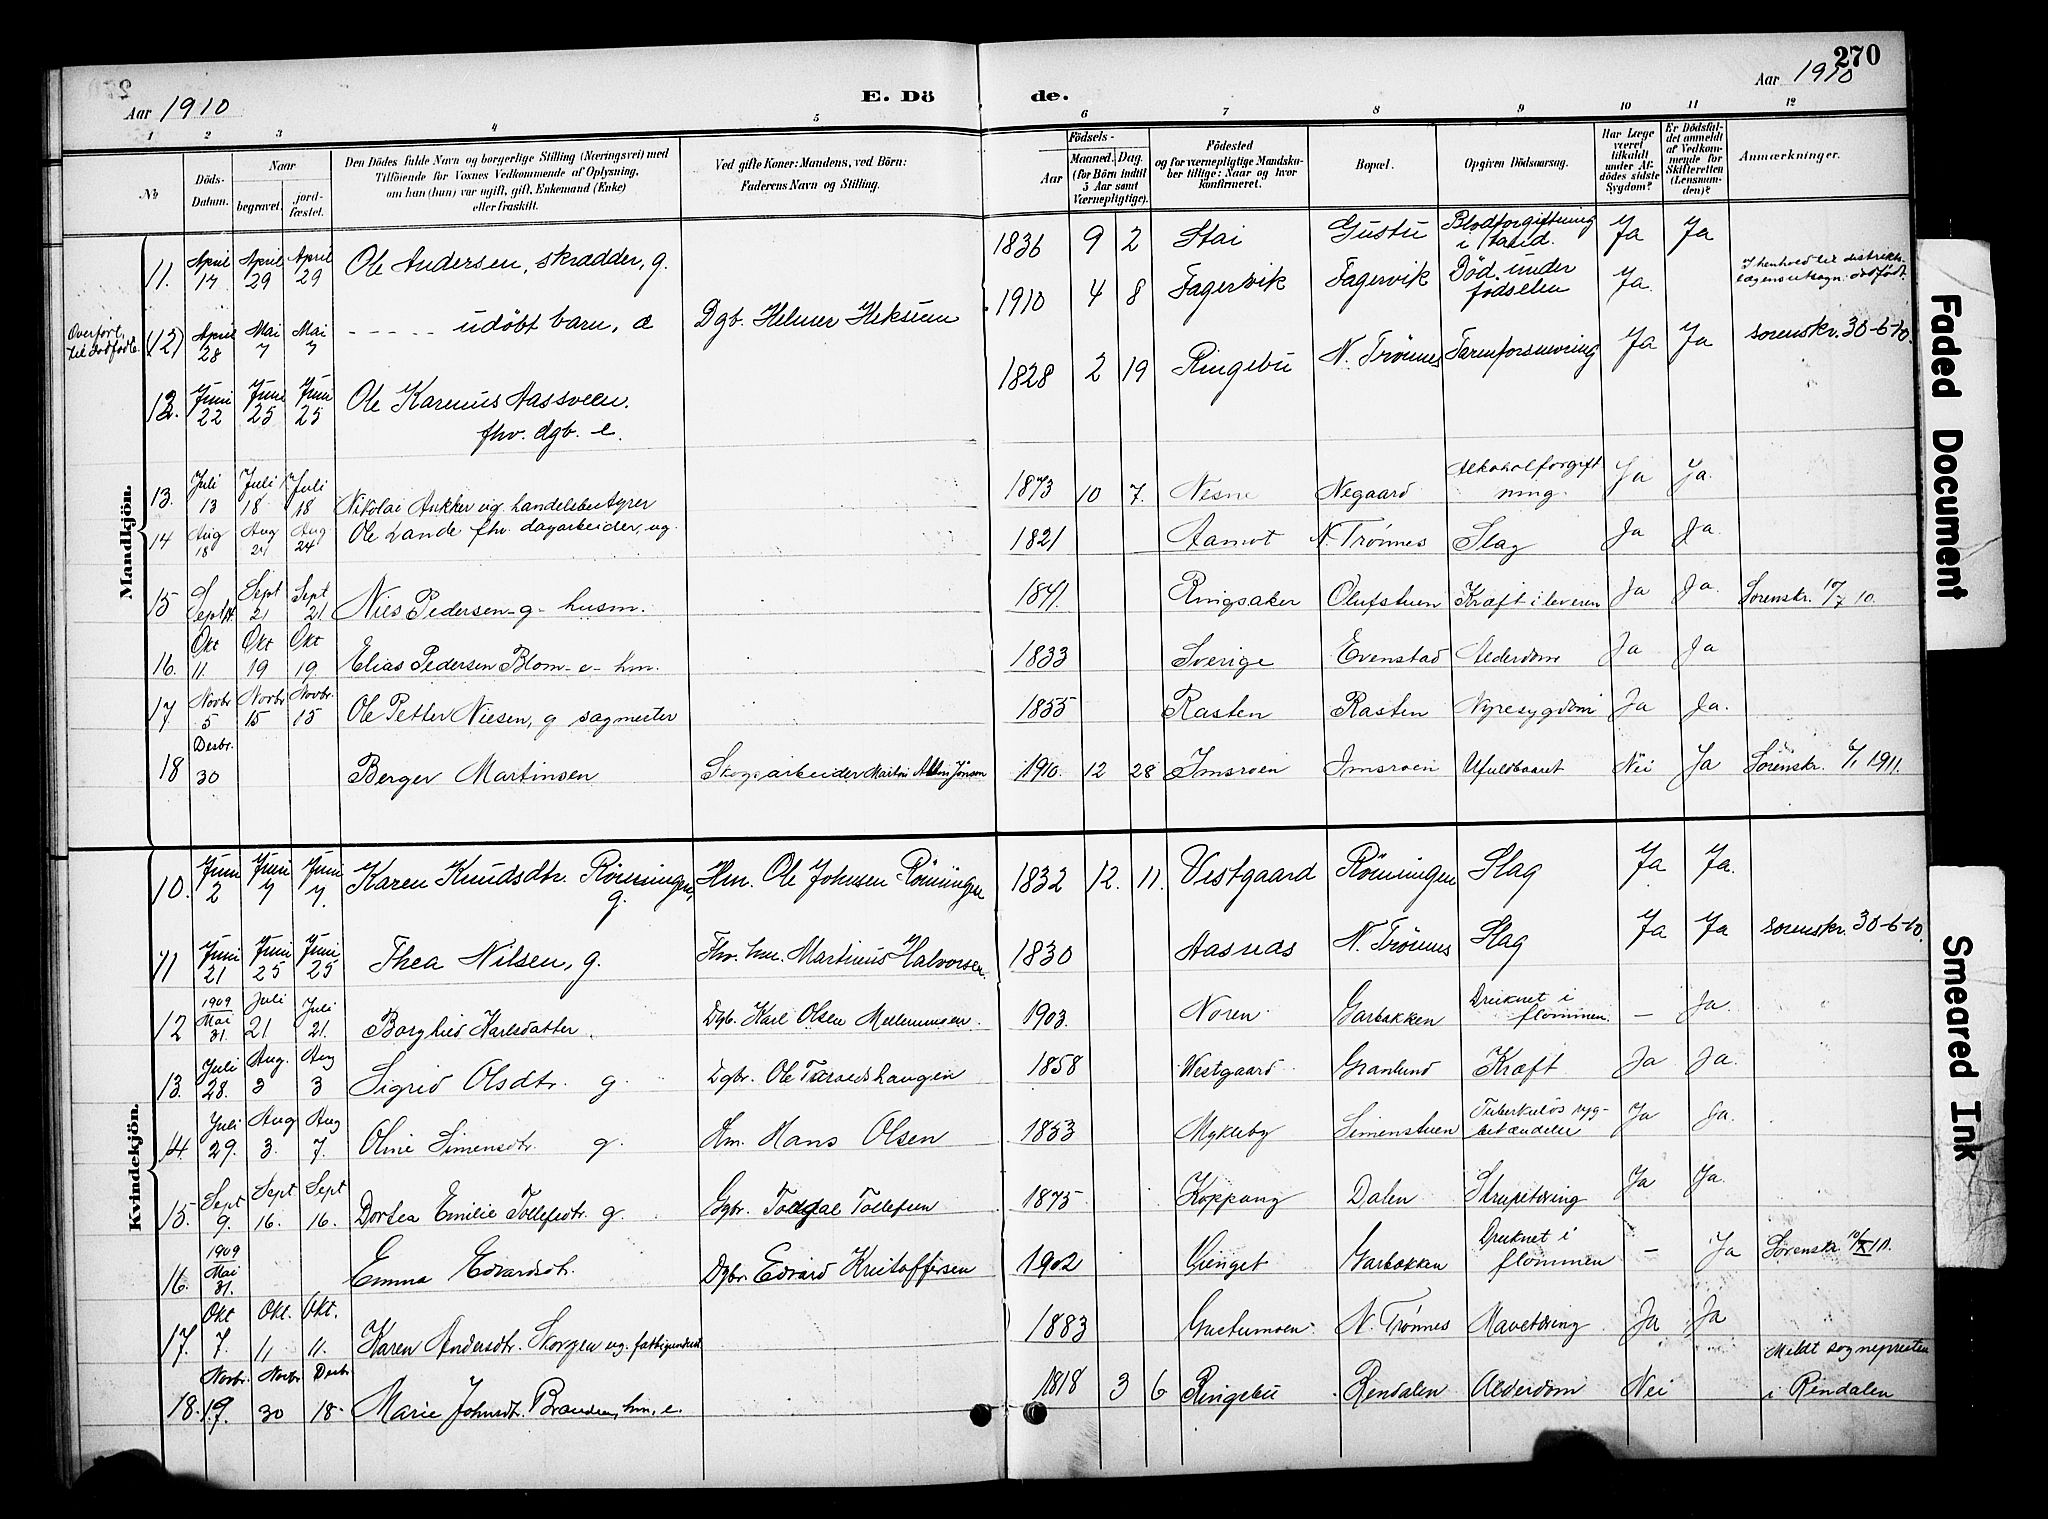 270
Aar 1910
E. Dö de.
Aar 1910
1 2 3 4 5 6 7 8 9 10 11 12
No
Döds-Datum.
Naar
begravet.
jord-fæstet.
Den Dödes fulde Navn og borgerlige Stilling (Næringsvei) med
Tilföiende for Voxnes Vedkommende af Oplysning,
om han (hun) var ugift, gift, Enkemand (Enke)
eller fraskilt.
Ved gifte Koner: Mandens, ved Börn:
Faderens Navn og Stilling.
Födsels-
Aar
Maaned. Dag.
(for Börn indtil
5 Aar samt
Værnepligtige).
Födested
og for værnepligtige Mandska-
ber tillige: Naar og hvor
konfirmeret.
Bopæl.
Opgiven Dödsaarsag.
Har Læge
været
tilkaldt
under Af-
dödes sidste
Sygdom?
Er Dödsfal-
det anmeldt
af Vedkom-
mende for
Skifteretten
(Lensman-
den)?
Anmærkninger.
Mandkjön.
11. April 17 April 29 April 29 Ole Andersen, skrædder, g. 1836 9 2 Stai Gustu Blodforgiftning i Ja Ja
Overført til dødfødte. (12) April 28 Mai 7 Mai 7 ----- udöbt barn, æ Dgb. Helmer Heksum 1910 4 8 Fagervik Fagervik Død under fødselen Ja. I henhold til distrikts-lægens utsagn dødfødt.
12. Juni 22 Juni 25 Juni 25 Ole Karenus Aassveen. fhv. dgb. e. 1828 2 19 Ringebu N. Trønnes Tarmforsnevring Ja Ja sorenskr. 30-6-10.
13. Juli 13 Juli 18 Juli 18 Nikolai Aukker ug. handelsbestyrer 1873 10 7. Nesne Negaard Alkoholforgift ning. Ja Ja.
14 Aug 18 Aug 24 Aug 24 Ole Lande fhv. dagarbeider, ug. 1821 Aamot N. Trønnes Slag Ja Ja.
15 Sept 21 Sept 21. Nils Pedersen - g - husm. 1841. Ringsaker Olufstuen Kræft i leveren Ja Ja. Sorenskr. 10.
16. Okt 11. Okt 19 Okt 19. Elias Pedersen Blom - e - hm. 1833 Sverige Evenstad Alderdom Ja Ja
17. Novbr 5 Novbr 15 Novbr. 15 Ole Petter Nilsen, g sagmester 1855 Rasten Rasten Nyresygdom Ja Ja.
18 Desbr. 30 Berger Martinsen Skogsarbeider Martin Albin Jönsen 1910. 12 28 Imsroen Imsroen Ufuldbaaret Nei Ja Sörenskr. 6/1 1911.
Kvindekjön.
10. Juni 2 Juni 7 Juni 7. Karen Knudsdtr. Rönningen, g. Hm. Ole Johnsen Rönningen 1832 12. 11. Vestgaard Rönningen Slag Ja Ja.
11 Juni 21 Juni 25 Juni 25 Thea Nilsen, g. Fhv. hm. Martinus Halvorsen. 1830 Aasnæs N. Trønnes Slag Ja Ja sorenskr. 30-6-10.
12 1909 Mai 31. Juli 21 Juli 21. Borghild Karlsdatter. Dgb. Karl Olsen Mellemmoen. 1903. Noren Garbakken Druknet i flommen. - Ja.
13. Juli 28. Aug. 3 Aug 3 Sigrid Olsdtr. g. Dgbr. Ole 1858 Westgaard Granlund Kræft Ja Ja.
14. Juli 29. Aug 3. Aug 7. Oline Simensdtr. g. Hm. Hans Olsen 1853 Mykleby Simenstuen Tuberkuløs ryg- betændelse Ja Ja.
15. Sept 9. Sept 16. Sept 16. Dortea Emilie Tollefsdtr. g. Gbr. Tollefsen 1875 Koppang Dalen Strupetæring Ja Ja.
16. 1909 Mai 31. Emma Edvardsdtr. Dgbr. Edvard Kristoffersen 1902 Gienget Garbakken Druknet i flommen - Ja Sørenskr. 10/X 10.
17. Okt 7. Okt. 11 Okt. 11. Karen Andersdtr. Skorgen ug. fattigunderst 1883 Gustumoen N. Trønnes Mavetæring Ja Ja
18. Novbr. 19. Novbr 30 Desbr 18 - Marie Johnsdtr. Brænden, hm. e. 1818 3 6 Ringebu Rendalen Alderdom Nei Meldt sognepresten i Rendalen
Faded Document
Smeared Ink